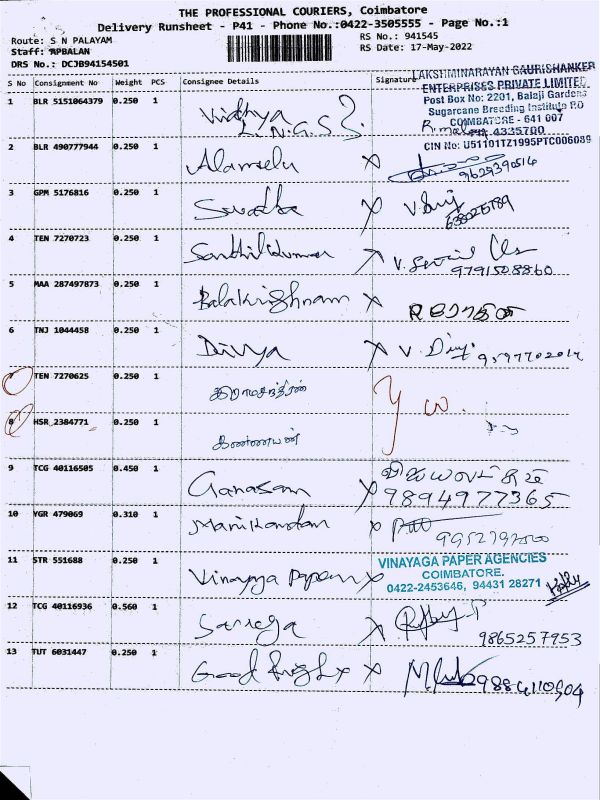 THE PROFESSIONAL COURIERS, Coimbatore
Delivery Runsheet - P41 - Phone No.:0422-3505555 - Page No.:1
Route: S N PALAYAM
RS No.: 941545
Staff: RPBALAN
RS Date: 17-May-2022
DRS No.: DCJB94154501
S No Consignment No Weight PCS Consignee Details Signature
LAKSHMINARAYAN GAURISHANKER
ENTERPRISES PRIVATE LIMITED
Post Box No: 2201, Balaji Gardens
Sugarcane Breeding Institute P.O
COIMBATORE - 641 007
4335700
CIN No: U51101TZ1995PTC006089
1 BLR 5151064379 0.250 1 Vidhya
L.N.G.S
2 BLR 490777944 0.250 1 Alamelu X
9629390514
3 GPM 5176816 0.250 1 Swatha X
4 TEN 7270723 0.250 1 Senthilkumar X
9791508860
5 MAA 287497873 0.250 1 Balakrishnam X
6 TNJ 1044458 0.250 1 Divya X V. Divy
7 TEN 7270625 0.250 1
8 HSR 2384771 0.250 1 கண்ணயன்
9 TCG 40116505 0.450 1 Ganasam X
9894977365
10 YGR 479069 0.310 1 Manikandan X
11 STR 551688 0.250 1 Vinayaga Papers X
VINAYAGA PAPER AGENCIES
COIMBATORE.
0422-2453646, 94431 28271
12 TCG 40116936 0.560 1 X
9865257953
13 TUT 6031447 0.250 1 Good X